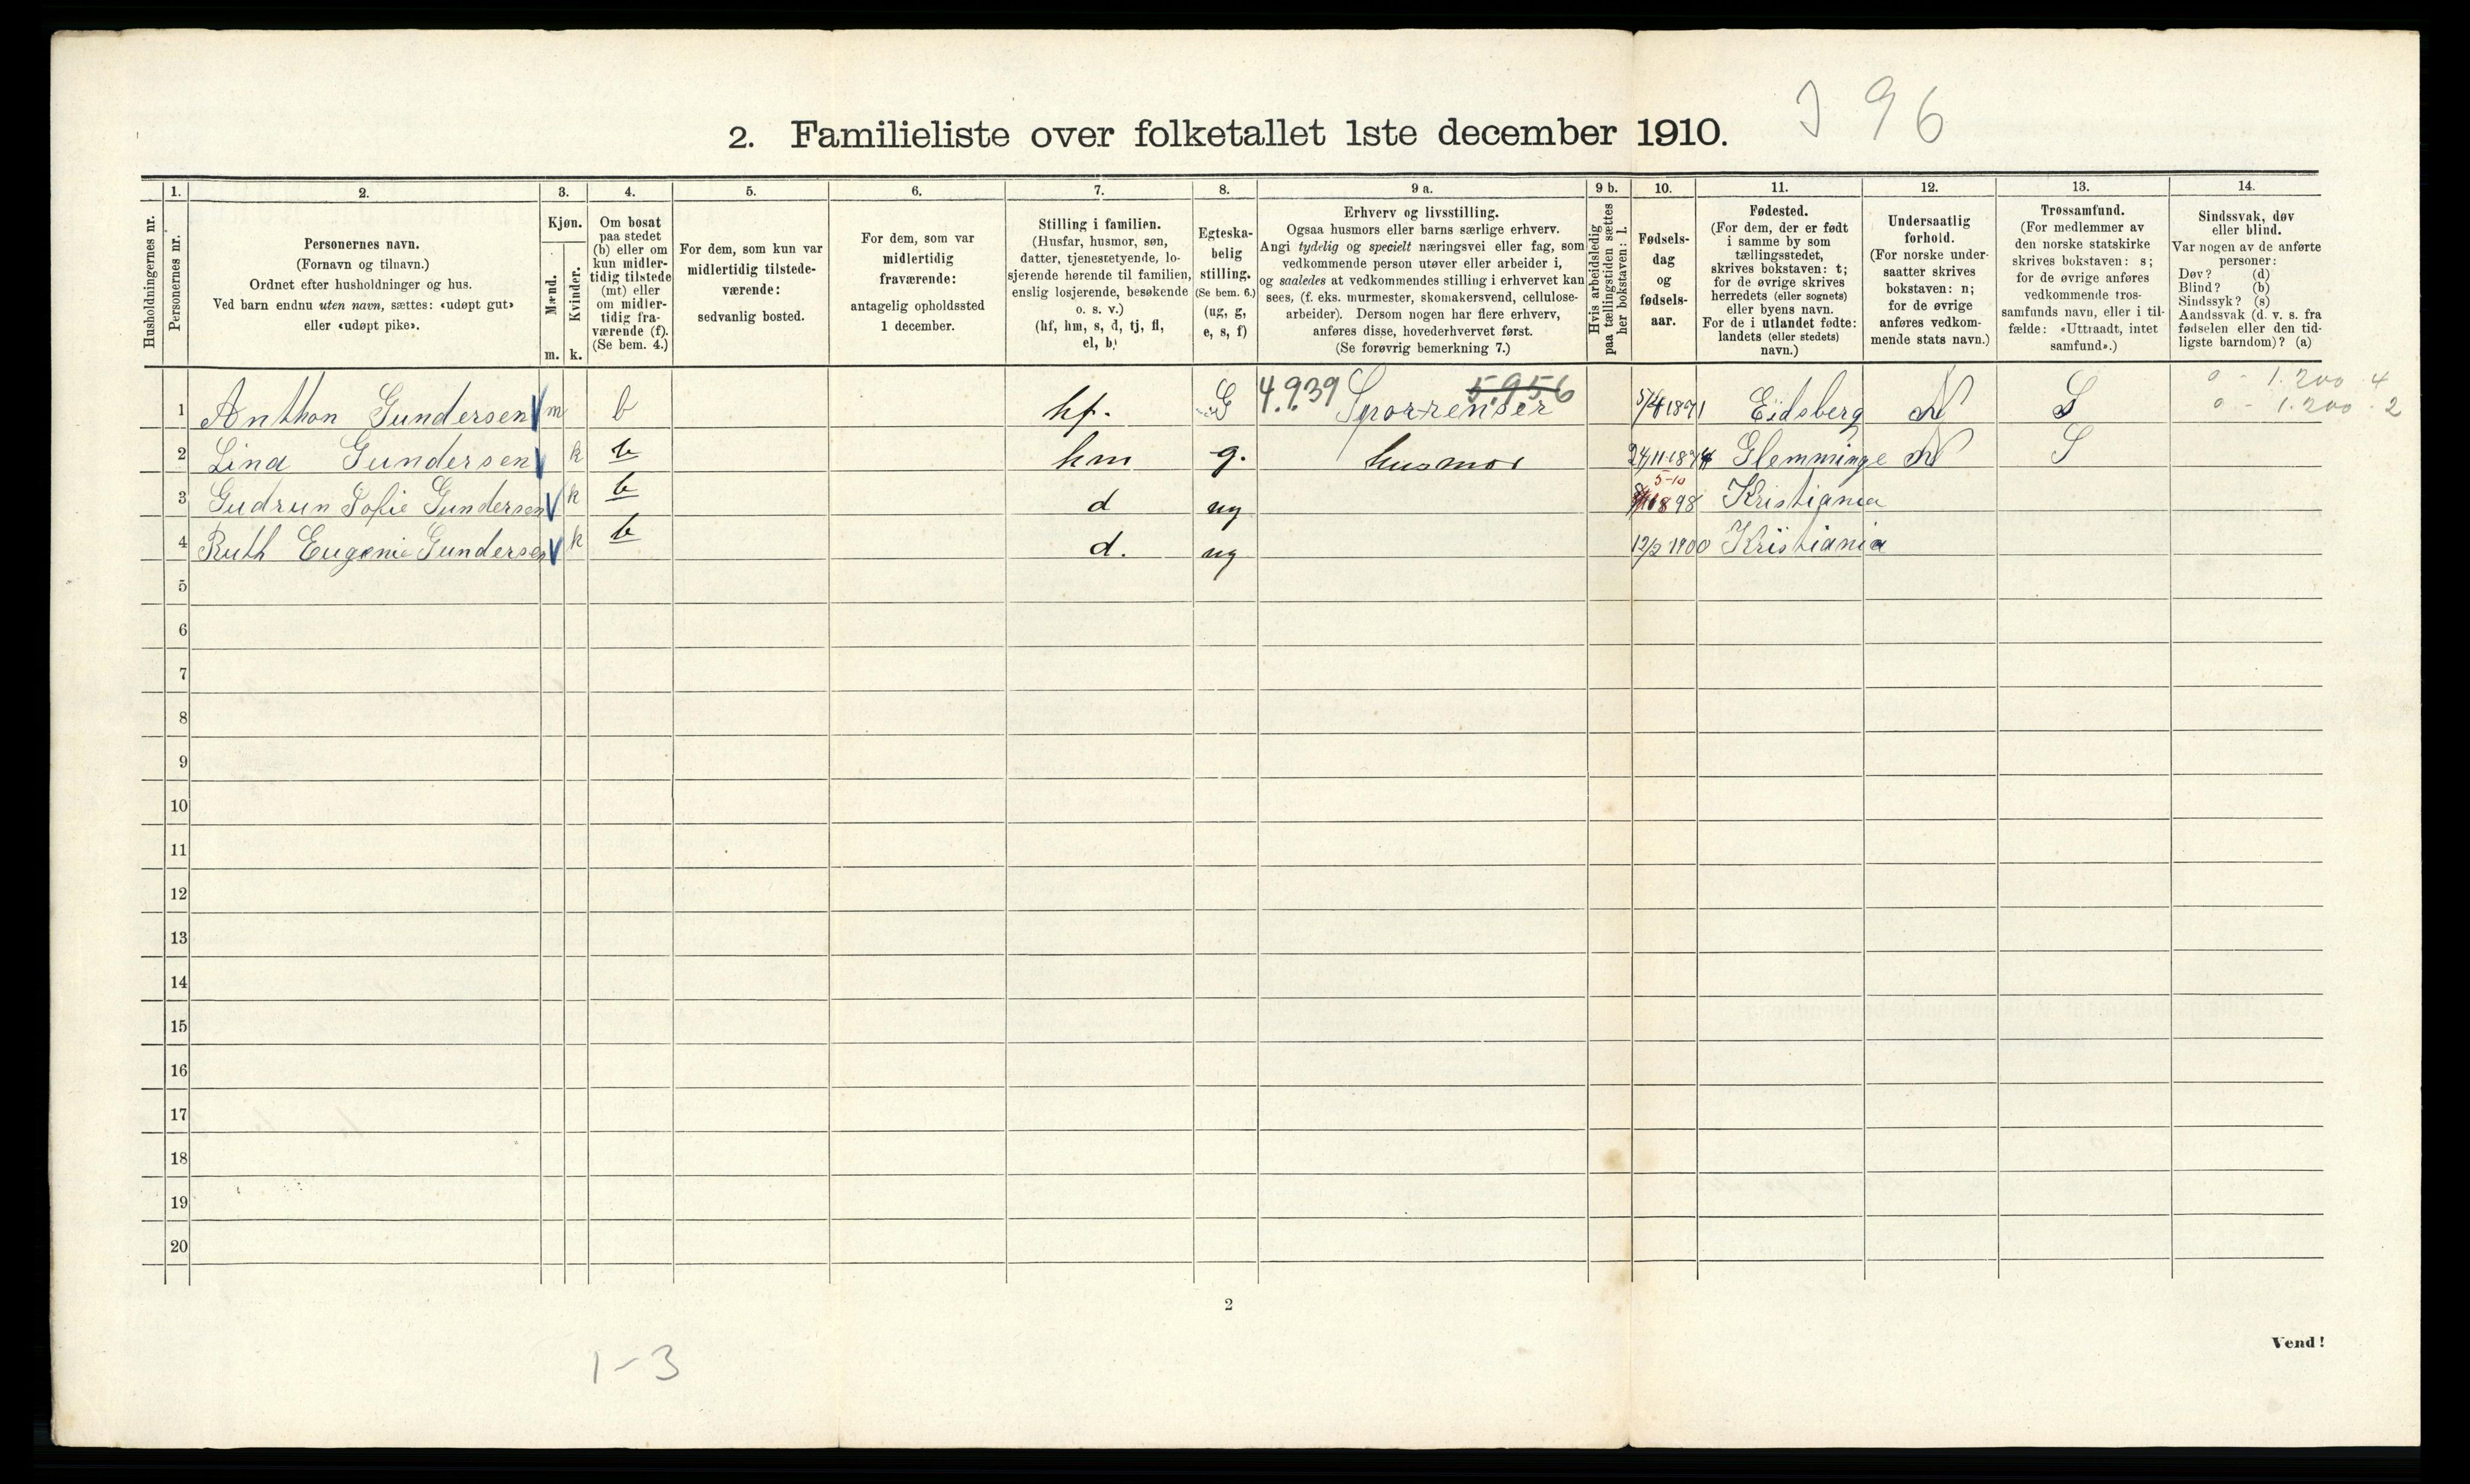 J 96
2. Familieliste over folketallet 1ste december 1910.
1. 2. 3. 4. 5. 6. 7. 8. 9 a. 9 b. 10. 11. 12. 13. 14.
Husholdningernes nr.
Personernes nr.
Personernes navn.
(Fornavn og tilnavn.)
Ordnet efter husholdninger og hus.
Ved barn endnu uten navn, sættes: «udøpt gut»
eller «udøpt pike».
Kjøn.
Mænd.
Kvinder.
m. k.
Om bosat
paa stedet
(b) eller om
kun midler-
tidig tilstede
(mt) eller
om midler-
tidig fra-
værende (f).
(Se bem. 4.)
For dem, som kun var
midlertidig tilstede-
værende:
sedvanlig bosted.
For dem, som var
midlertidig
fraværende:
antagelig opholdssted
1 december.
Stilling i familien.
(Husfar, husmor, søn,
datter, tjenestetyende, lo-
sjerende hørende til familien,
enslig losjerende, besøkende
o. s. v.)
(hf, hm, s, d, tj, fl,
el, b)
Egteska-
belig
stilling.
(Se bem. 6.)
(ug, g,
e, s, f)
Erhverv og livsstilling.
Ogsaa husmors eller barns særlige erhverv.
Angi tydelig og specielt næringsvei eller fag, som
vedkommende person utøver eller arbeider i,
og saaledes at vedkommendes stilling i erhvervet kan
sees, (f. eks. murmester, skomakersvend, cellulose-
arbeider). Dersom nogen har flere erhverv,
anføres disse, hovederhvervet først.
(Se forøvrig bemerkning 7.)
Hvis arbeidsledig
paa tællingstiden sættes
her bokstaven: l.
Fødsels-
dag
og
fødsels-
aar.
Fødested.
(For dem, der er født
i samme by som
tællingsstedet,
skrives bokstaven: t;
for de øvrige skrives
herredets (eller sognets)
eller byens navn.
For de i utlandet fødte:
landets (eller stedets)
navn.)
Undersaatlig
forhold.
(For norske under-
saatter skrives
bokstaven: n;
for de øvrige
anføres vedkom-
mende stats navn.)
Trossamfund.
(For medlemmer av
den norske statskirke
skrives bokstaven: s;
for de øvrige anføres
vedkommende tros-
samfunds navn, eller i til-
fælde: «Uttraadt, intet
samfund».)
Sindssvak, døv
eller blind.
Var nogen av de anførte
personer:
Døv? (d)
Blind? (b)
Sindssyk? (s)
Aandssvak (d. v. s. fra
fødselen eller den tid-
ligste barndom)? (a)
4.939 5.956 0 - 1.200 . 4
1 Anthon Gundersen m b hf. G Sporrenser 5/4 1871 Eidsberg N S 0 - 1.200 . 2
2 Lina Gundersen k b hm g. husmor 24/11 1874 Glemminge N S
5-10
3 Gudrun Sofie Gundersen k b d ug 1898 Kristiania
4 Ruth Eugenie Gundersen k b d. ug 12/2 1900 Kristiania
5
6
7
8
9
10
11
12
13
14
15
16
17
18
19
20
2
Vend!
1-3